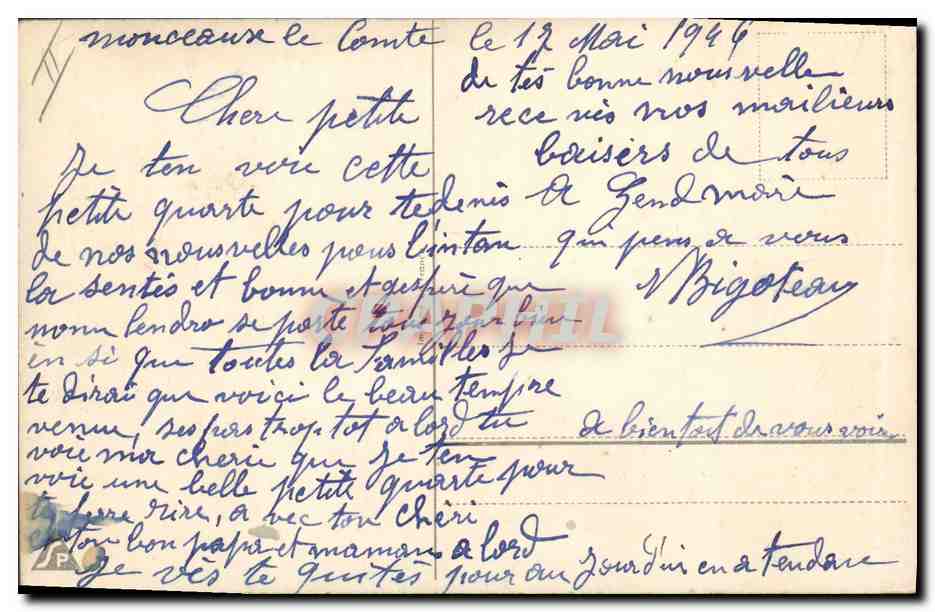 monceaux le Comte le 12 Mai 1946
Chere petite
Je ten voie cette
petite quarte pour te denés
de nos nousvelles pous l'intan
la sentés et bonne et gesperé que
nonu Lendro se porte tous zour bien
in si que toutes la familles je
te diraü que voici le beau tempre
venue, ses pas trop tot a lord tu
voie ma cherie que je ten
voie une belle petite quarte pour
te faire rire, a vec ton cheri
et ton bon papa et maman a lord
Je vès te quités pour au jourdui en atendan
de tés bonne nousvelle
rece vés nos mailieurs
baisérs de tous
A Gendmaire
qui pens a vous
Bigoteau
a bientost de vous voir
CPARPHIL
P